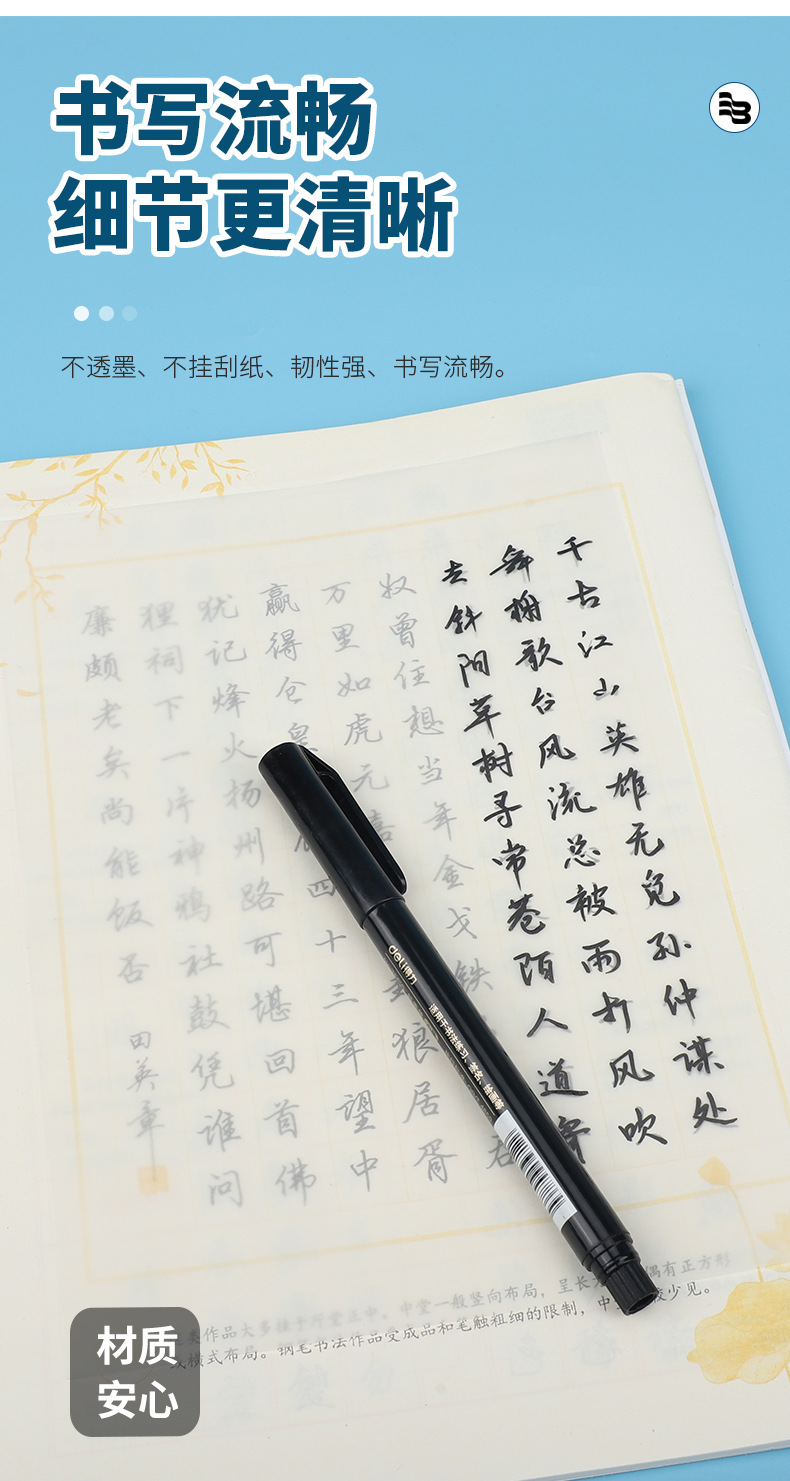 书写流畅
细节更清晰
不透墨、不挂刮纸、韧性强、书写流畅。
千古江山英雄无觅孙仲谋处
舞榭歌台风流总被雨打风吹
去斜阳草树寻常巷陌人道寄
奴曾住想当年金戈铁
万里如虎元嘉 封狼居胥
赢得仓皇 四十三年望中
犹记烽火扬州路可堪回首佛
狸祠下一片神鸦社鼓凭谁问
廉颇老矣尚能饭否
田英章
deli得力
适用于书法练习、签名、绘画等
类作品大多挂于厅堂正中。中堂一般竖向布局，呈长 偶有正方形
或横式布局。钢笔书法作品受成品和笔触粗细的限制，中 较少见。
材质
安心